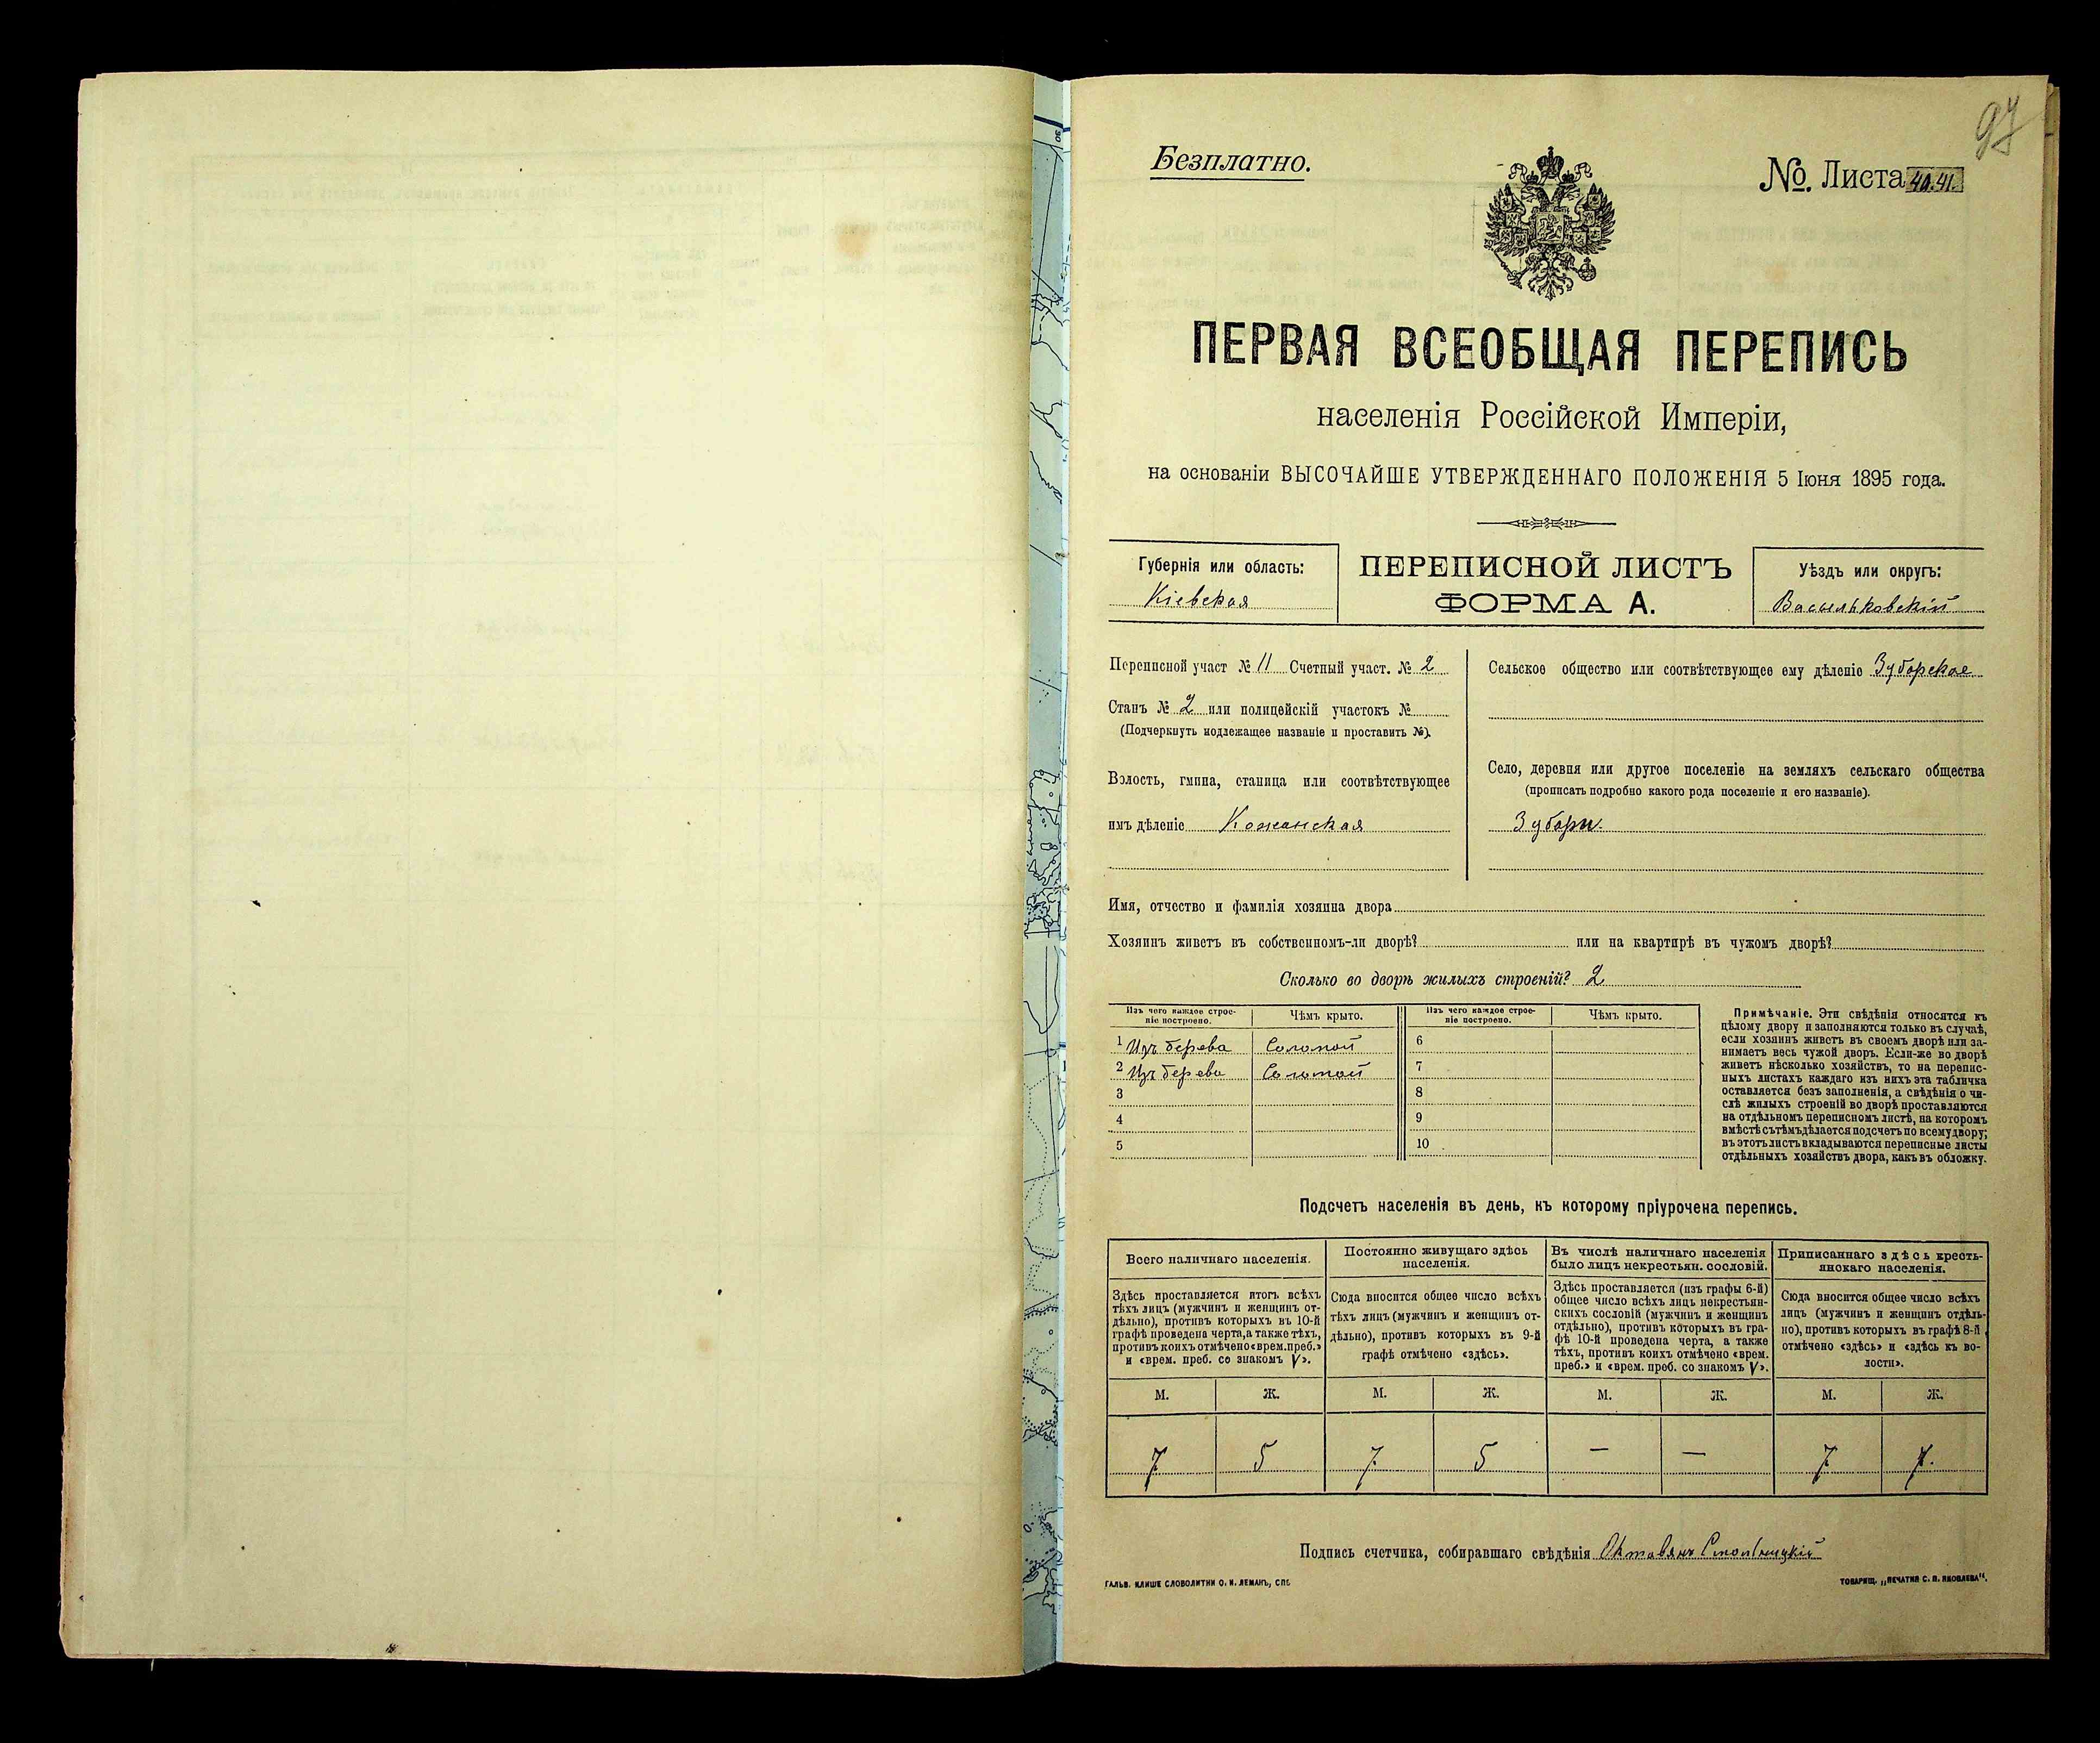 97
Безплатно.
№. Листа 40.41.
ПЕРВАЯ ВСЕОБЩАЯ ПЕРЕПИСЬ
населенія Россійской Имперіи,
на основаніи ВЫСОЧАЙШЕ УТВЕРЖДЕННАГО ПОЛОЖЕНІЯ 5 Іюня 1895 года.
Губернія или область:
Кіевская
ПЕРЕПИСНОЙ ЛИСТЪ
ФОРМА А.
Уѣздъ или округъ:
Васильковскій
Переписной участ № 11 Счетный участ. № 2
Станъ № 2 или полицейскій участокъ №
(Подчеркнуть подлежащее названіе и проставить №).
Волость, гмина, станица или соотвѣтствующее
имъ дѣленіе Кожанская
Сельское общество или соотвѣтствующее ему дѣленіе Зубарское
Село, деревня или другое поселеніе на земляхъ сельскаго общества
(прописать подробно какого рода поселеніе и его названіе).
Зубари.
Имя, отчество и фамилія хозяина двора
Хозяинъ живетъ въ собственномъ-ли дворѣ? или на квартирѣ въ чужомъ дворѣ?
Сколько во дворѣ жилыхъ строеній? 2
Изъ чего каждое строе-
ніе построено.
Чѣмъ крыто.
Изъ чего каждое строе-
ніе построено.
Чѣмъ крыто.
1 Изъ дерева Соломой 6
2 Изъ дерева Соломой 7
3 8
4 9
5 10
Примѣчаніе. Эти свѣдѣнія относятся къ
цѣлому двору и заполняются только въ случаѣ,
если хозяинъ живетъ въ своемъ дворѣ или за-
нимаетъ весь чужой дворъ. Если-же во дворѣ
живетъ нѣсколько хозяйствъ, то на перепис-
ныхъ листахъ каждаго изъ нихъ эта табличка
оставляется безъ заполненія, а свѣдѣнія о чи-
слѣ жилыхъ строеній во дворѣ проставляются
на отдѣльномъ переписномъ листѣ, на которомъ
вмѣстѣ съ тѣмъ дѣлается подсчетъ по всему двору;
въ этотъ листъ вкладываются переписные листы
отдѣльныхъ хозяйствъ двора, какъ въ обложку.
Подсчетъ населенія въ день, къ которому пріурочена перепись.
Всего наличнаго населенія.
Здѣсь проставляется итогъ всѣхъ
тѣхъ лицъ (мужчинъ и женщинъ от-
дѣльно), противъ которыхъ въ 10-й
графѣ проведена черта, а также тѣхъ,
противъ коихъ отмѣчено «врем. преб.»
и «врем. преб. со знакомъ V».
Постоянно живущаго здѣсь
населенія.
Сюда вносится общее число всѣхъ
тѣхъ лицъ (мужчинъ и женщинъ от-
дѣльно), противъ которыхъ въ 9-й
графѣ отмѣчено «здѣсь».
Въ числѣ наличнаго населенія
было лицъ некрестьян. сословій.
Здѣсь проставляется (изъ графы 6-й)
общее число всѣхъ лицъ некрестьян-
скихъ сословій (мужчинъ и женщинъ
отдѣльно), противъ которыхъ въ гра-
фѣ 10-й проведена черта, а также
тѣхъ, противъ коихъ отмѣчено «врем.
преб.» и «врем. преб. со знакомъ V».
Приписаннаго здѣсь кресть-
янскаго населенія.
Сюда вносится общее число всѣхъ
лицъ (мужчинъ и женщинъ отдѣль-
но), противъ которыхъ въ графѣ 8-й
отмѣчено «здѣсь» и «здѣсь къ во-
лости».
М. Ж. М. Ж. М. Ж. М. Ж.
7 5 7. 5 — — 7. 7.
Подпись счетчика, собиравшаго свѣдѣнія Октавянъ
ГАЛЬВ. КЛИШЕ СЛОВОЛИТНИ О. И. ЛЕМАНЪ, СПБ.
ТОВАРИЩ. „ПЕЧАТНЯ С. П. ЯКОВЛЕВА“.